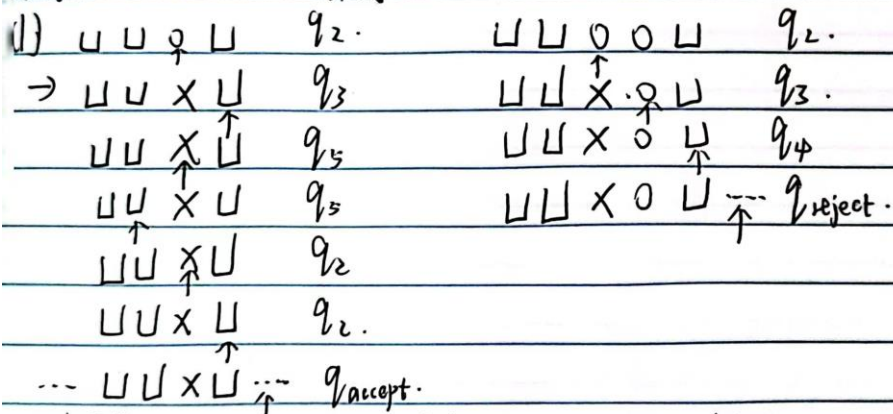 (1) ⊔ ⊔ 0 ⊔ q2.
↑
→ ⊔ ⊔ X ⊔ q3
↑
⊔ ⊔ X ⊔ q5
↑
⊔ ⊔ X ⊔ q5
↑
⊔ ⊔ X ⊔ q2
↑
⊔ ⊔ X ⊔ q2.
↑
... ⊔ ⊔ X ⊔ ... q accept.
↑
⊔ ⊔ 0 0 ⊔ q2.
↑
⊔ ⊔ X 0 ⊔ q3.
↑
⊔ ⊔ X 0 ⊔ q4
↑
⊔ ⊔ X 0 ⊔ ... q reject.
↑